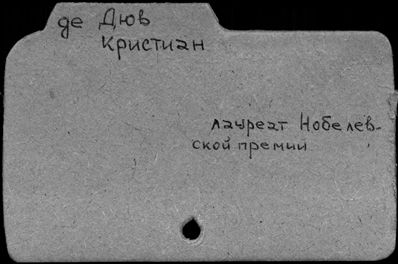 де Дюв
Кристиан
лауреат Нобелев-
ской премии